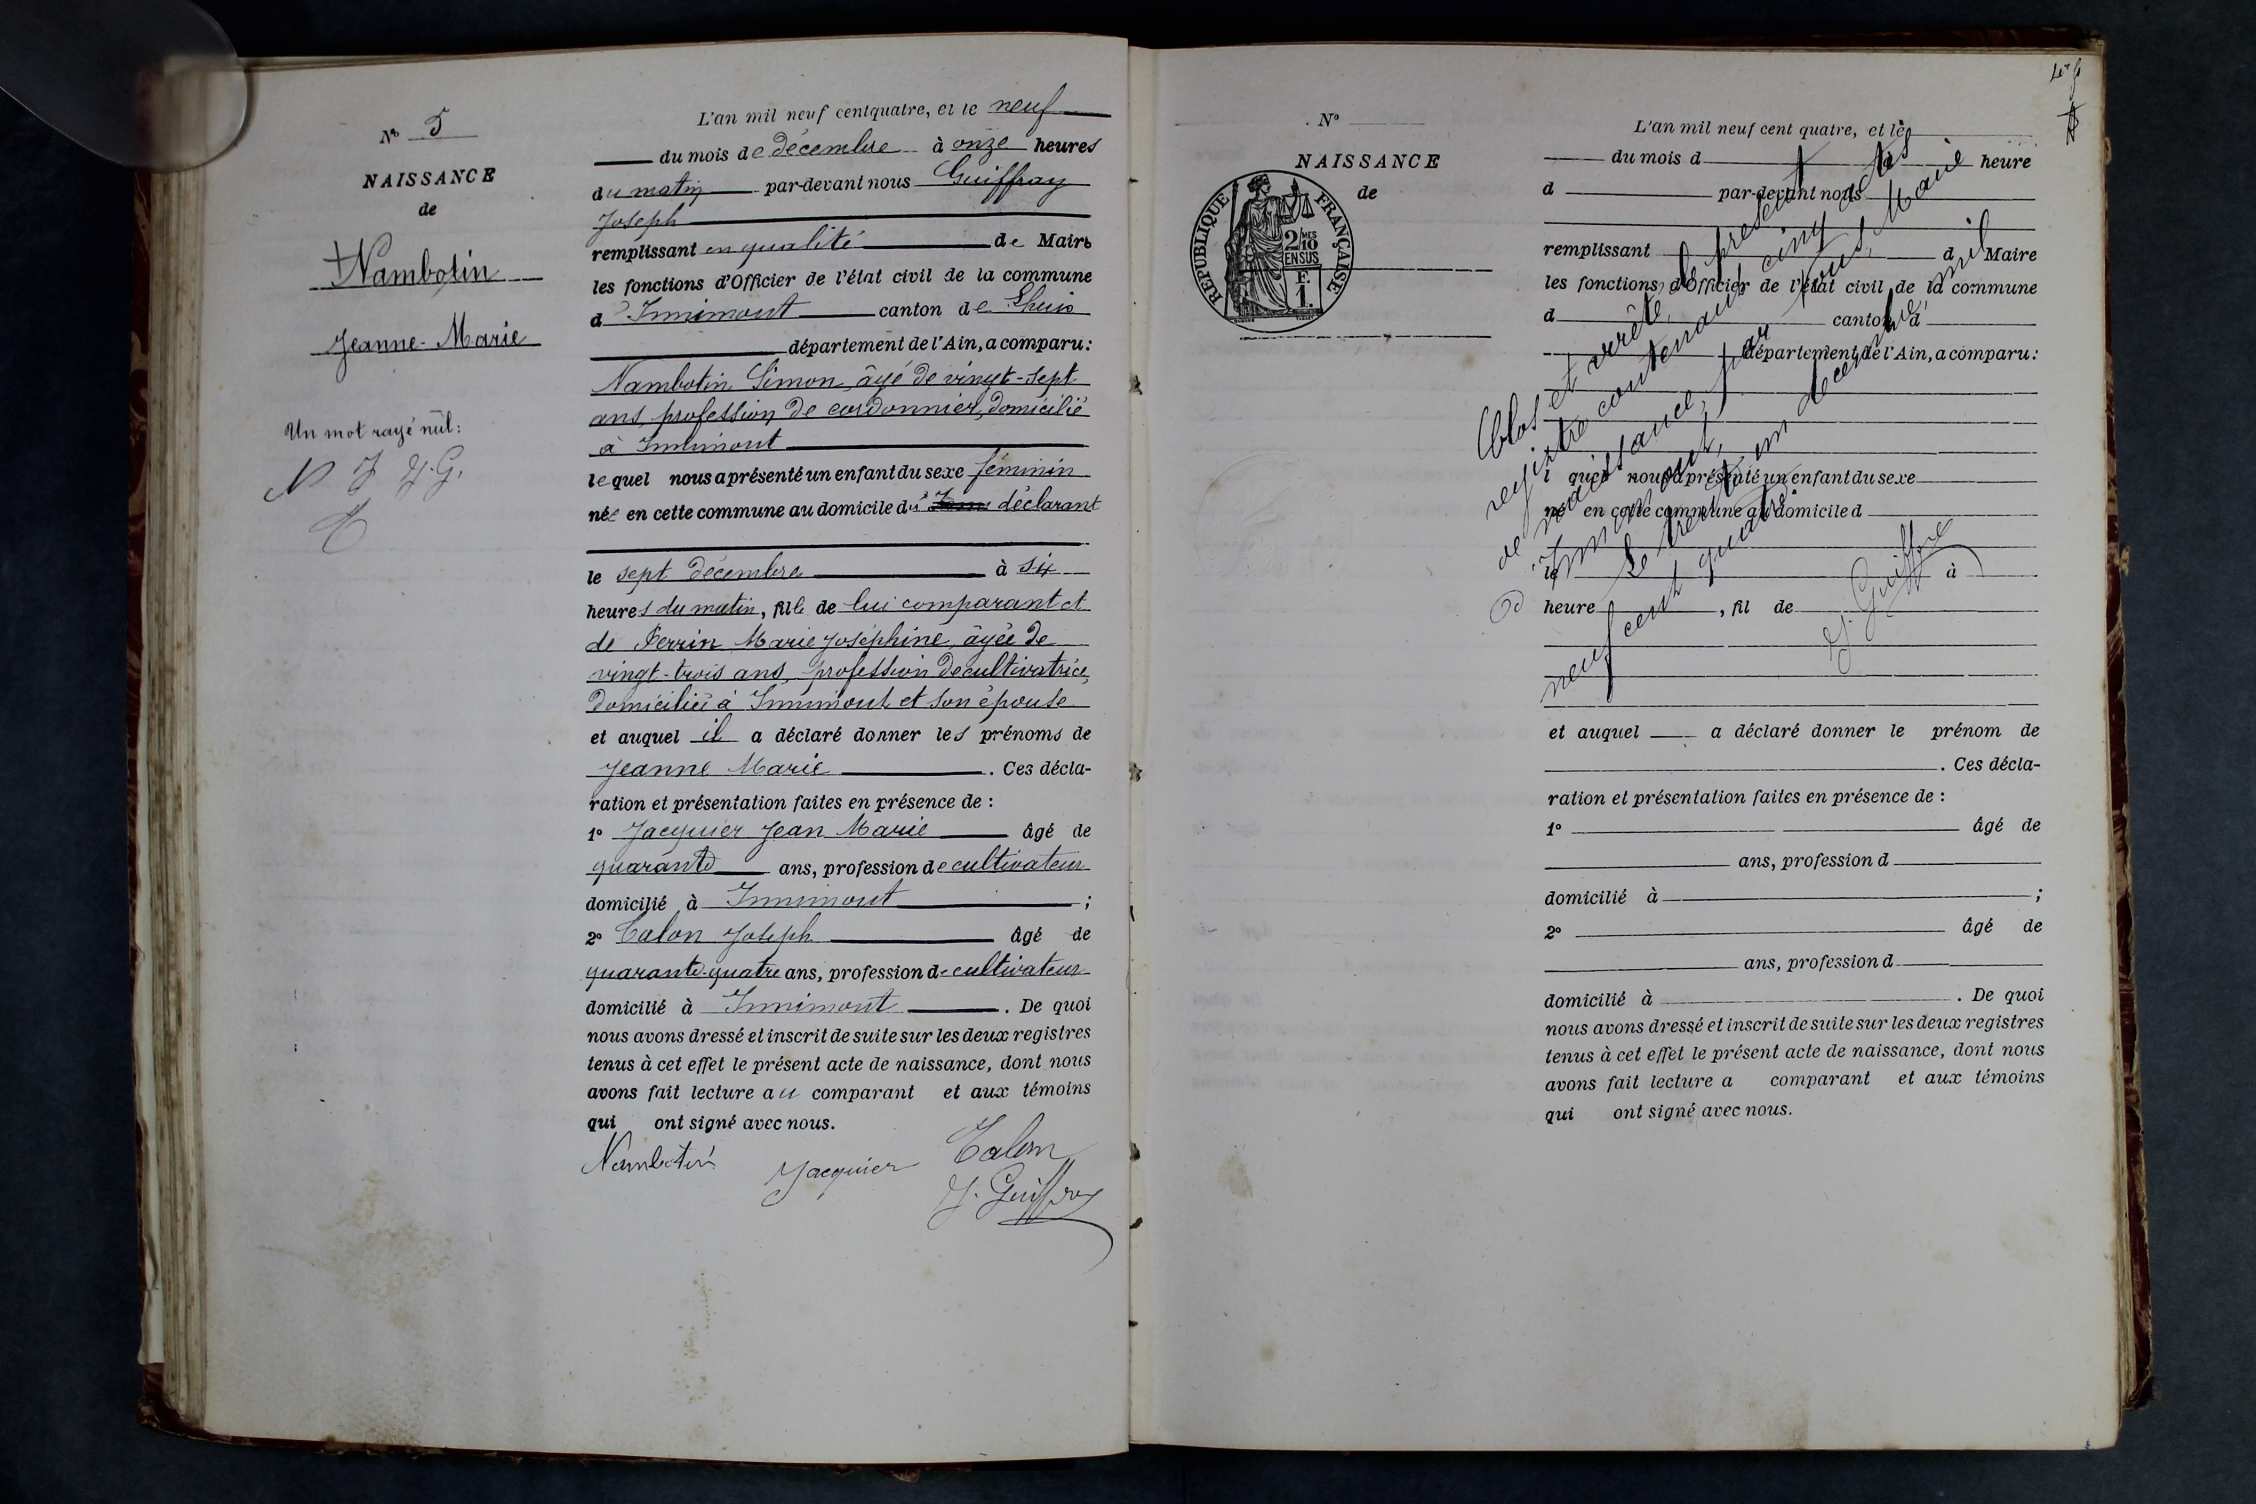 N° 5
NAISSANCE
de
Nambotin
Jeanne-Marie
Un mot rayé nul:
N J J.G.
L'an mil neuf cent quatre, et le neuf
du mois de décembre à onze heures
du matin par-devant nous Guiffray
Joseph
remplissant en qualité de Maire
les fonctions d'Officier de l'état civil de la commune
d'Innimont canton de Lhuis
département de l'Ain, a comparu:
Nambotin Simon, âgé de vingt-sept
ans, profession de cordonnier, domicilié
à Innimont
lequel nous a présenté un enfant du sexe féminin
née en cette commune au domicile du déclarant
le sept décembre à six
heures du matin, fille de lui comparant et
de Perrin Marie Joséphine, âgée de
vingt-trois ans, profession de cultivatrice,
domiciliée à Innimont et son épouse
et auquel il a déclaré donner les prénoms de
Jeanne Marie. Ces décla-
ration et présentation faites en présence de :
1° Jacquier Jean Marie âgé de
quarante ans, profession de cultivateur
domicilié à Innimont ;
2° Talon Joseph âgé de
quarante-quatre ans, profession de cultivateur
domicilié à Innimont. De quoi
nous avons dressé et inscrit de suite sur les deux registres
tenus à cet effet le présent acte de naissance, dont nous
avons fait lecture au comparant et aux témoins
qui ont signé avec nous.
Nambotin Jacquier Talon
J. Guiffray
N°
NAISSANCE
de
REPUBLIQUE FRANÇAISE
2/10 MES
EN SUS
F.
1.
L'an mil neuf cent quatre, et le
du mois d à heure
d par-devant nous
remplissant d Maire
les fonctions d'Officier de l'état civil de la commune
d canton d
département de l'Ain, a comparu:
l quel nous a présenté un enfant du sexe
né en cette commune au domicile d
le à
heure , fil de
et auquel a déclaré donner le prénom de
. Ces décla-
ration et présentation faites en présence de :
1° âgé de
ans, profession d
domicilié à ;
2° âgé de
ans, profession d
domicilié à . De quoi
nous avons dressé et inscrit de suite sur les deux registres
tenus à cet effet le présent acte de naissance, dont nous
avons fait lecture a comparant et aux témoins
qui ont signé avec nous.
Clos et arrêté, le présent
registre contenant cinq actes
de naissance, par nous, Maire
d'Innimont,
Le trente un décembre mil
neuf cent quatre.
J. Guiffray